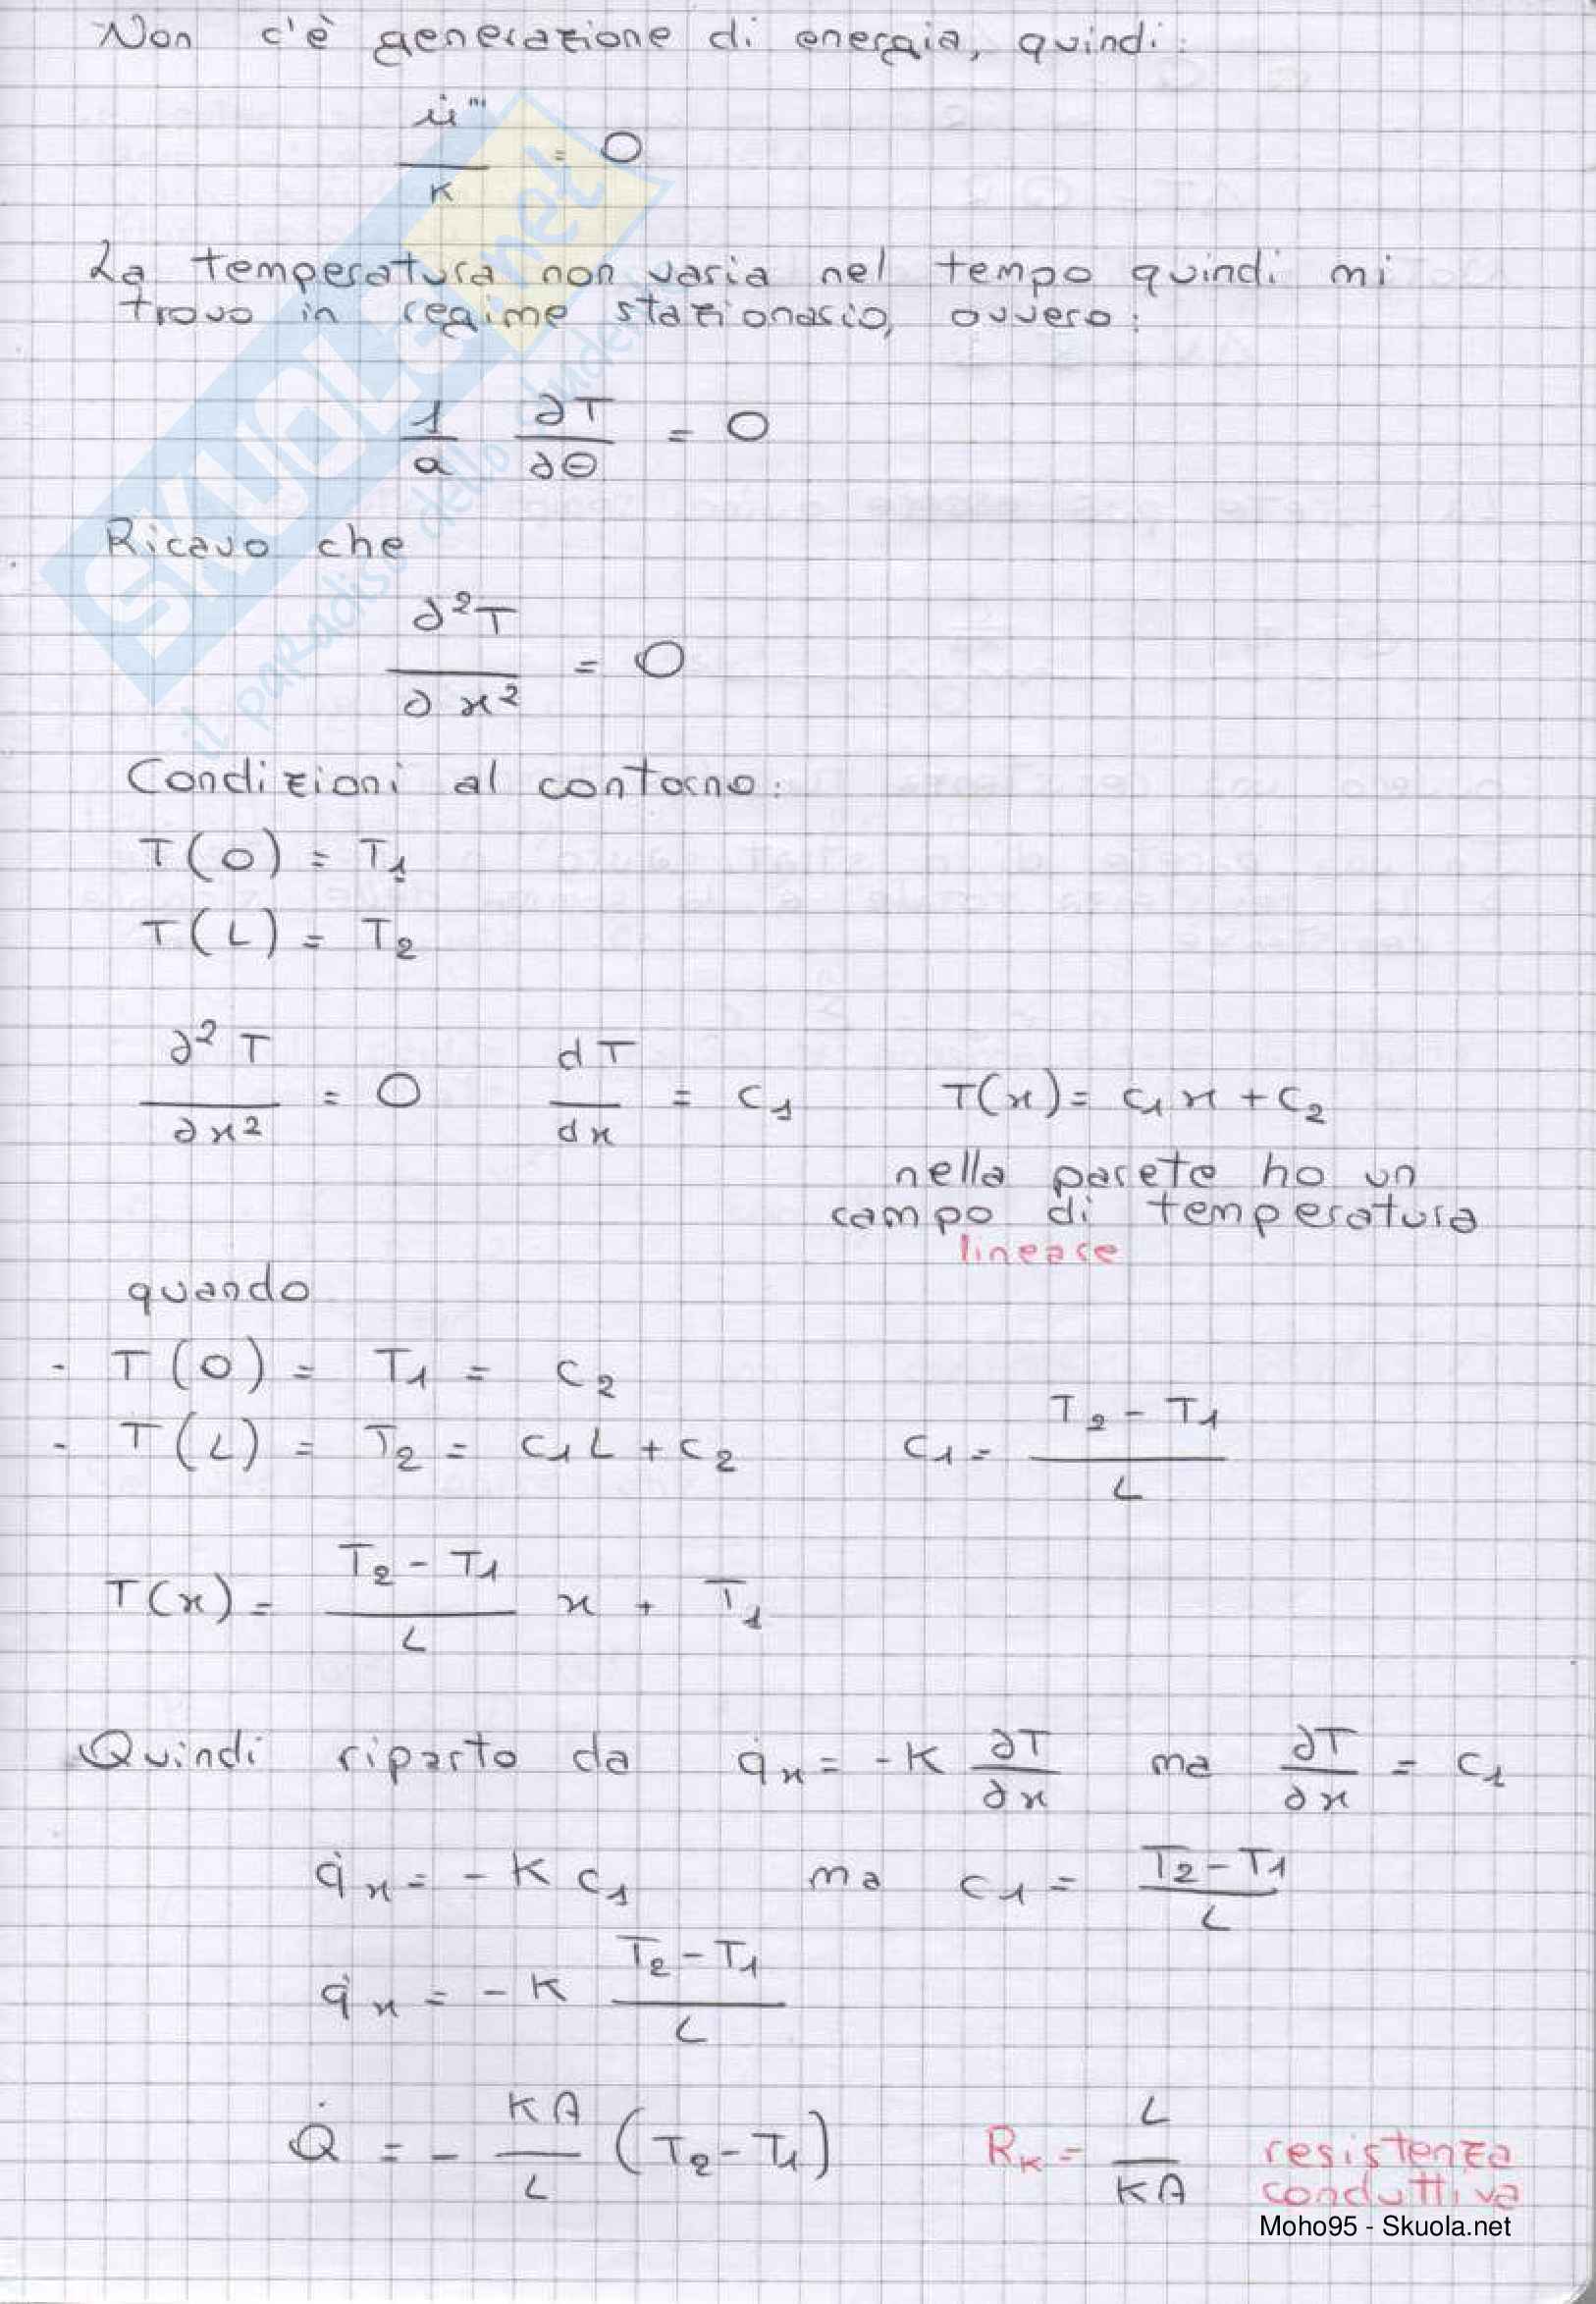 Non c'è generazione di energia, quindi:
u̇''' / K = 0
La temperatura non varia nel tempo quindi mi
trovo in regime stazionario, ovvero:
1/a ∂T/∂Θ = 0
Ricavo che
∂²T / ∂x² = 0
Condizioni al contorno:
T(0) = T1
T(L) = T2
∂²T / ∂x² = 0   dT/dx = c1   T(x) = c1 x + c2
nella parete ho un
campo di temperatura
lineare
quando
- T(0) = T1 = c2
- T(L) = T2 = c1 L + c2   c1 = (T2 - T1) / L
T(x) = (T2 - T1) / L x + T1
Quindi riparto da q̇x = -K ∂T/∂x ma ∂T/∂x = c1
q̇x = - K c1   ma c1 = (T2 - T1) / L
q̇x = - K (T2 - T1) / L
Q̇ = - KA/L (T2 - T1)   RK = L/KA resistenza
conduttiva
Moho95 - Skuola.net
SKUOLA.net
il paradiso dello studente